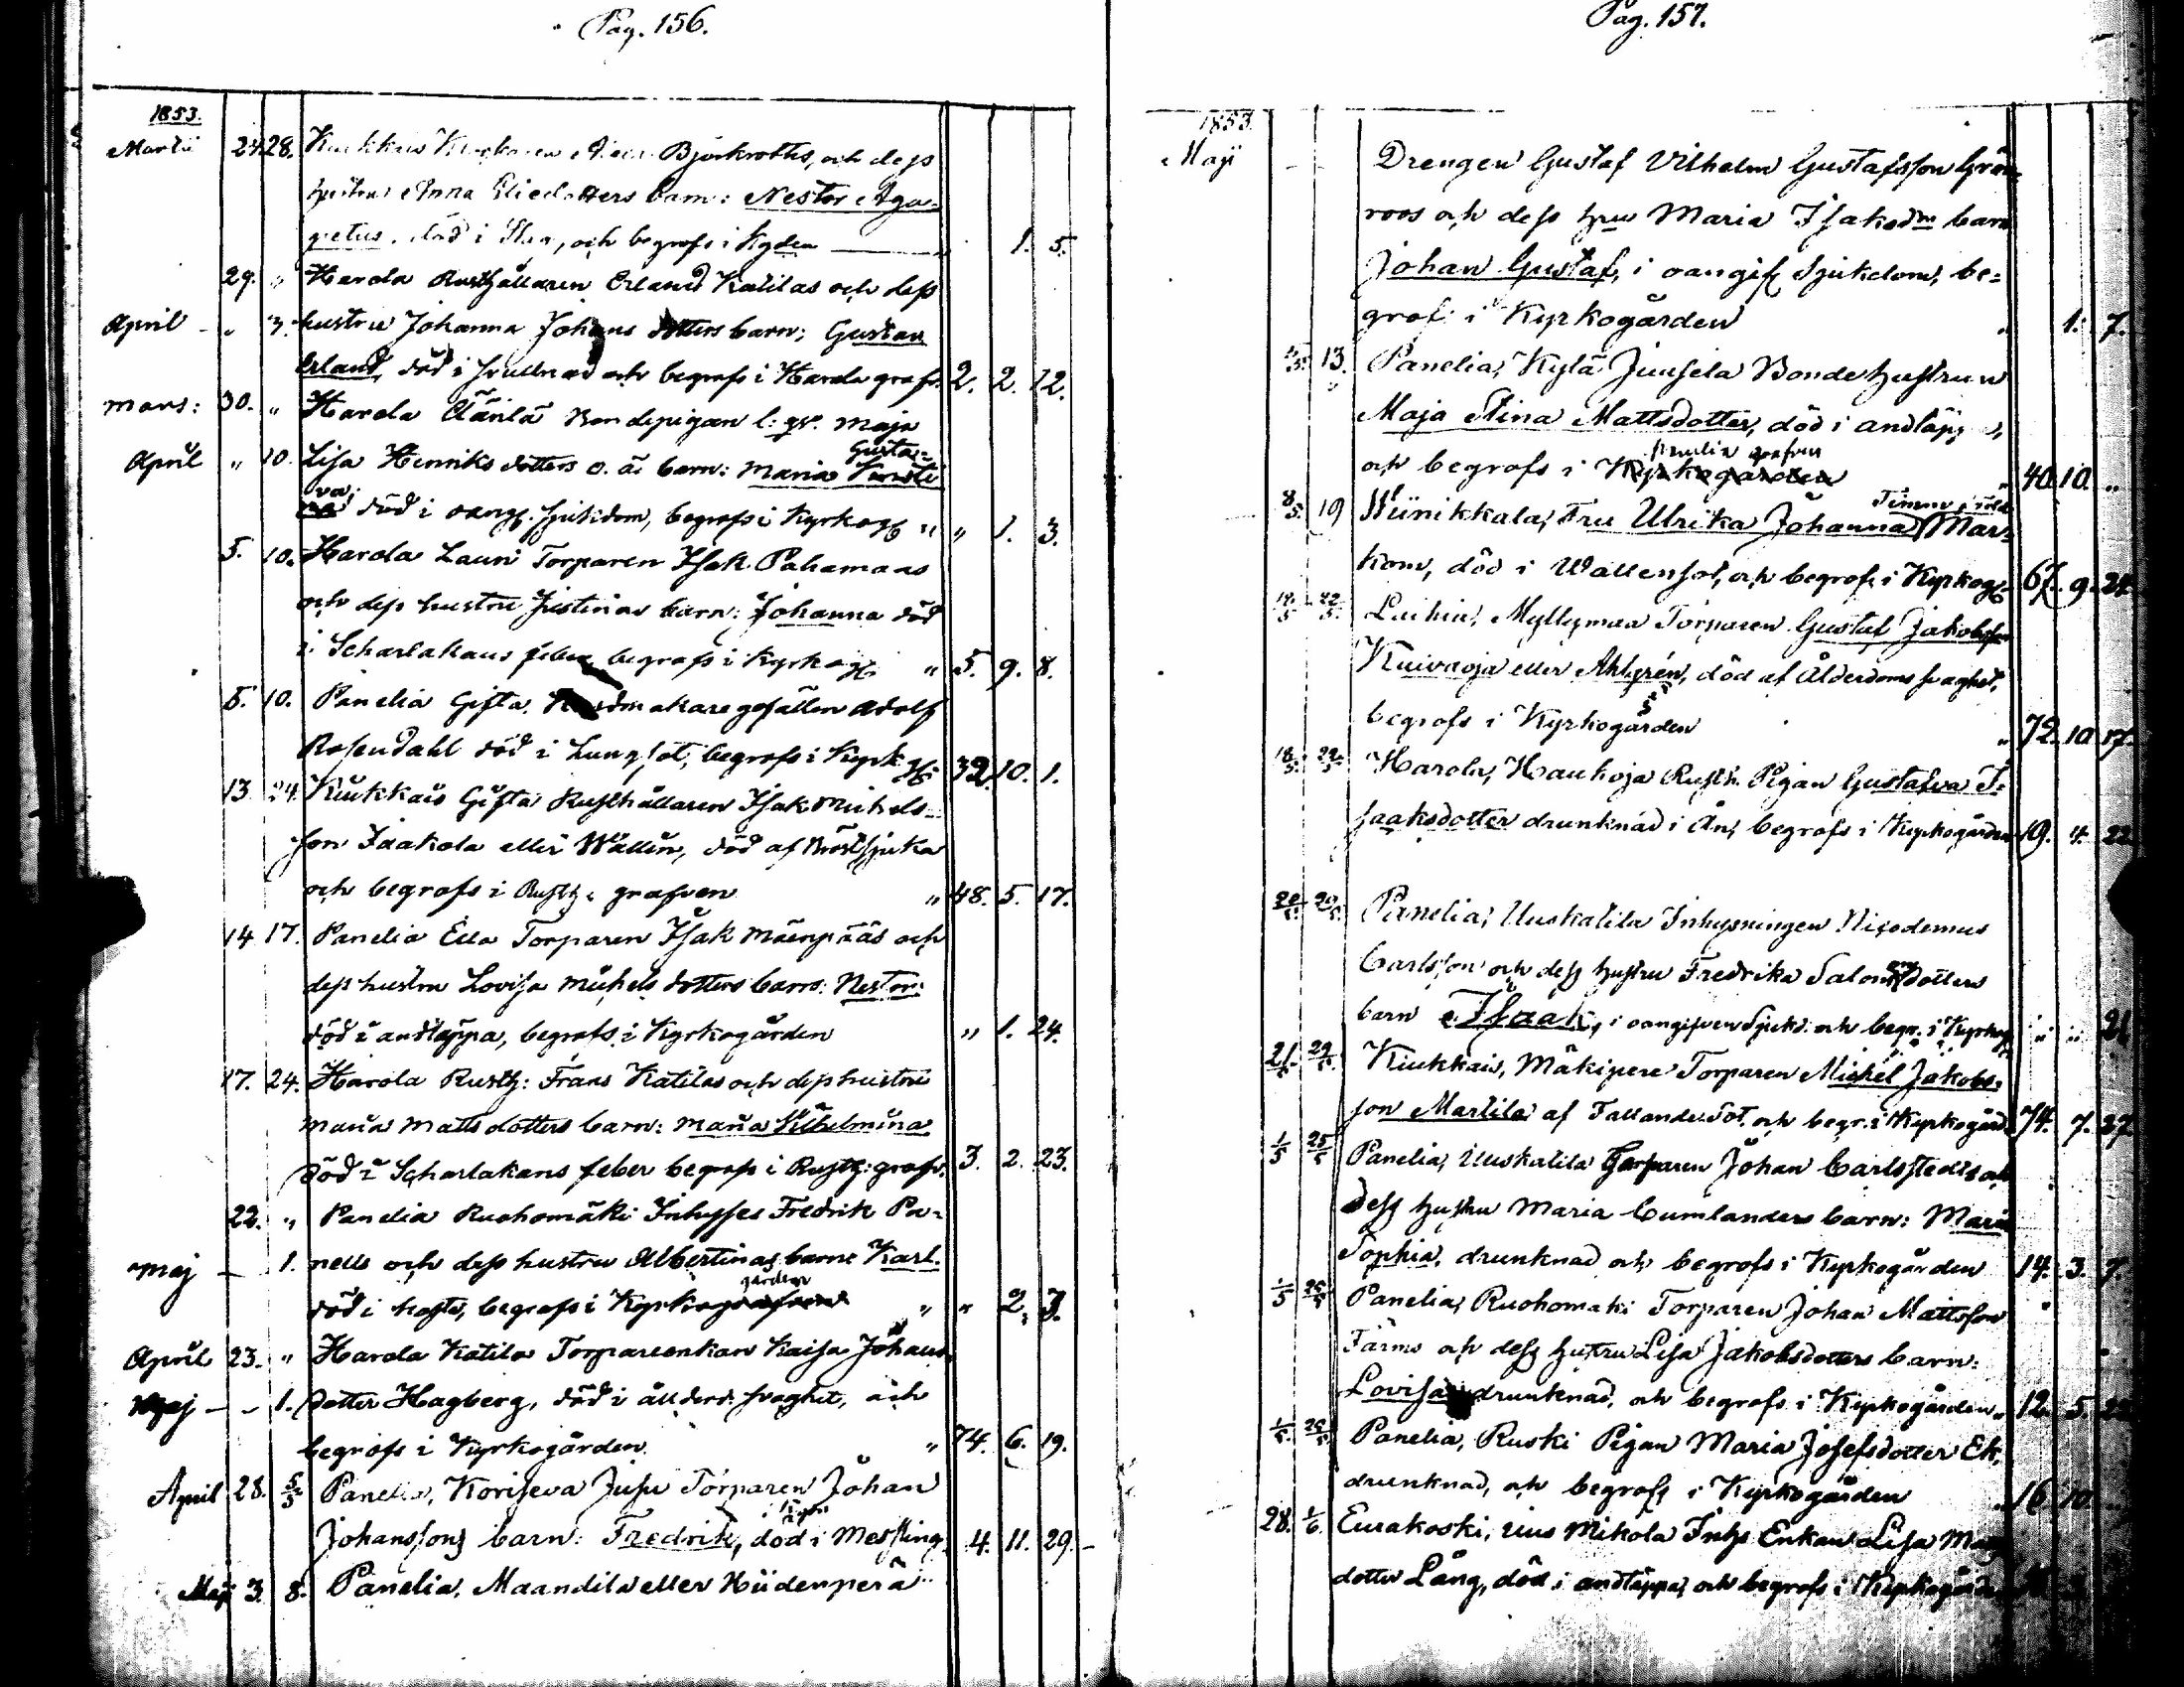 Pag. 156.
1853.
Martii 24. 28. Kiukkais Björkroths, och dess
hustrus Anna Eliedotters barn: Nestor Aga-
petus, död i Slag, och begrofs i Kgden 1. 5.
29. " Harola Rusthållaren Erland Katilas och dess
April - " 3. hustru Johanna Johans dotters barn; Gustav
Erland, död i och begrofs i Harola grafv. 2. 2. 12.
Mars: 30. " Harola Äänlä Bondepigan Maja
April " 10. Lisa Henriks dotters o. ä. barn: Maria Gusta-
va; död i oang. sjukdom, begrofs i Kyrkog " " 1. 3.
5. 10. Harola Lauri Torparen Isak Pahamaas
och dess hustru Justinas barn: Johanna död
i Scharlakans feber begrofs i Kyrkog " 5. 9. 8.
5. 10. Panelia Gifta gesällen Adolf
Rosendahl död i Lungsot, begrofs i Kyrk 32. 10. 1.
13. 24. Kiukkais Gifta Rusthållaren Isak Michels-
son Jaakola eller Wallin, död af Bröstsjuka
och begrofs i Rusth: grafven " 48. 5. 17.
14 17. Panelia Eila Torparen Isak Mäenpääs och
dess hustru Lovisa Michels dotters barn: Nestor:
död i andtäppa, begrofs i Kyrkogården " 1. 24.
17. 24. Harola Rusth: Frans Katilas och dess hustru
Maria Matts dotters barn: Maria Wilhelmina
död i Scharlakans feber begrofs i Rusth: grafv. 3. 2. 23.
22. " Panelia Ruohomäki Inhyses Fredrik Pa-
Maj - 1. nells och dess hustru Albertinas barn: Karl.
död i hosta, begrofs i Kyrkogården " " 2. 3.
April 23. " Harola Katila Torpareenkan Kaisa Johans
Maj - - 1. dotter Hagberg, död i ålderd. svaghet, och
begrofs i Kyrkogården. " 74. 6. 19.
April 28. 5/5 Panelia, Koriseva Jusu Torparen Johan
Johanssons barn: Fredrik, död i Messling 4. 11. 29.
Maji 3. 8. Panelia, Maandila eller Hiidenperä
Pag. 157.
1853.
Maji Drengen Gustaf Vilhelm Gustafsson Grön-
roos och dess hru Maria Isaksdrs barn
Johan Gustaf, i oangif Sjukdom, be=
grof: i Kyrkogården " 1. 7.
13. Panelia, Kylä Juusela Bondehustrun
Maja Stina Mattsdotter, död i andtäpp,
och begrofs i Kyrkogården Panelia grafven " 40. 10. "
8/5. 19 Niinikkala, Fru Ulrika Johanna Mar-
kom, död i Wattensot, och begrofs i Kyrkog. 67. 9. 24.
22/5. Laihia, Myllymaa Torparen Gustaf Jakobsson
Kuivaoja eller Ahlgrén, död af Ålderdoms svaghet,
begrofs i Kyrkogården " 72. 10 17.
18/5. 22/5 Harola, Haukoja Rusth. Pigan Gustafva I-
saaksdotter drunknad i Ån, begrofs i Kyrkogården 19. 4. 22
Panelia, Uuskatila Inhysningen Nicodemus
Carlsson och dess hustru Fredrika Salomonsdotters
barn Isaak, i oangifven Sjukd: och begr. i Kyrkog " " 21
21/5. 29/5. Kiukkais, Mäkipere Torparen Michel Jakobs-
son Martila af Fallande Sot. och begr. i Kyrkogård 74. 7. 27
1/5 25/5 Panelia, Uuskatila Torparen Johan Carlstedts och
dess hustru Maria Cumlanders barn: Maria
Sophia, drunknad och begrofs i Kyrkogården 14. 3. 7.
1/5 25/5 Panelia, Ruohomaki Torparen Johan Mattsson
Färms och dess hustru Lisa Jakobsdotters barn:
Lovisa drunknad, och begrofs i Kyrkogården " 12. 5. 22
1/5. 25/5. Panelia, Ruski Pigan Maria Josefsdotter Ek,
drunknad, och begrofs i Kyrkogården " 16 10 "
28. 1/6. Eurakoski, Mikola Inhs Enkan Lisa
dotter Lång, död i andtäppa, och begrofs i Kyrkogården